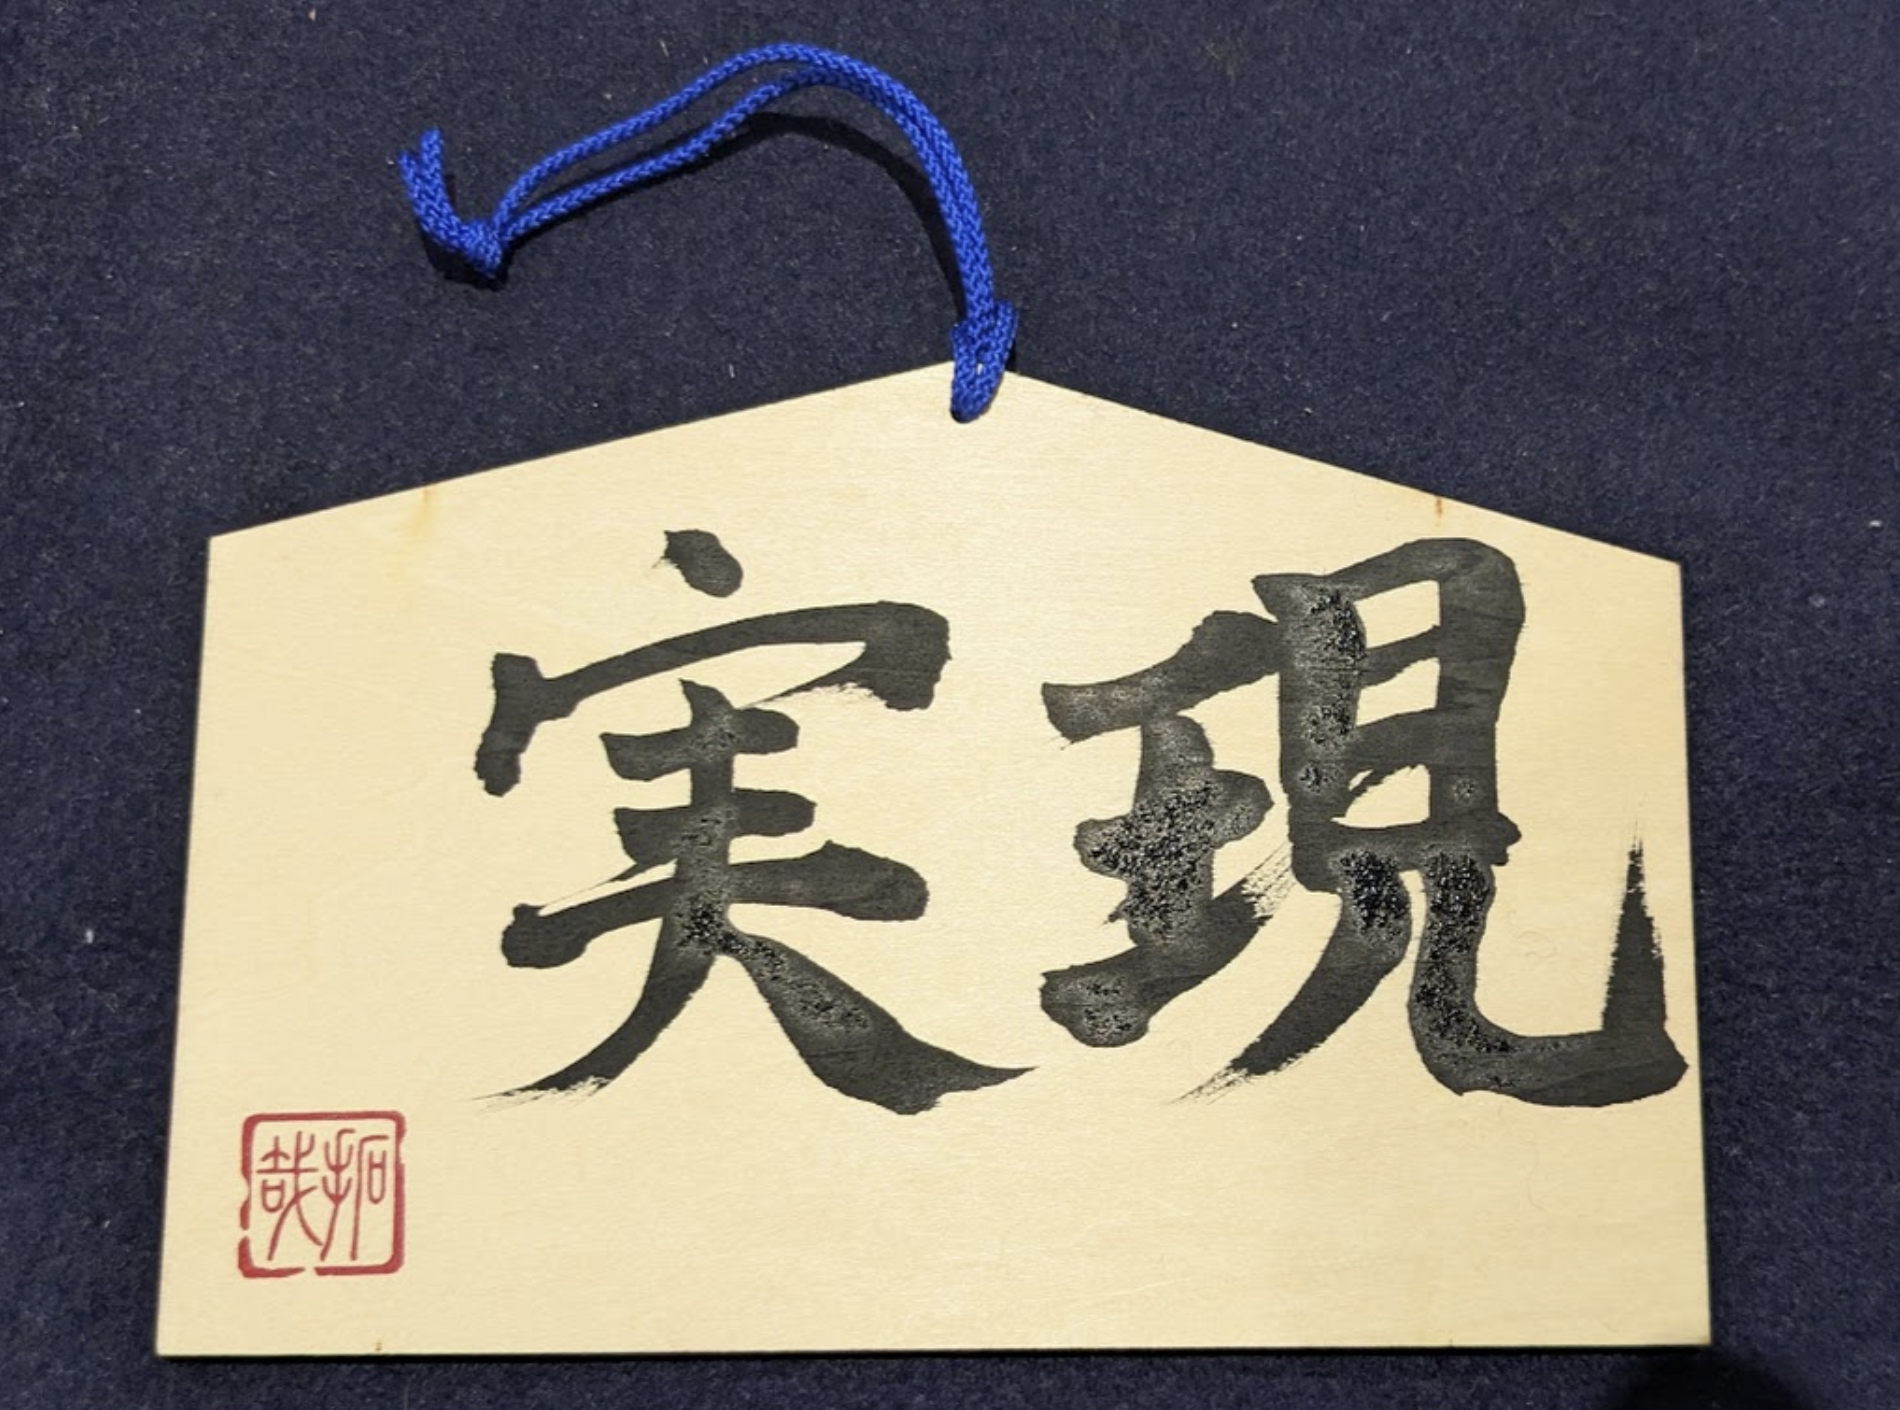 実現
拓哉